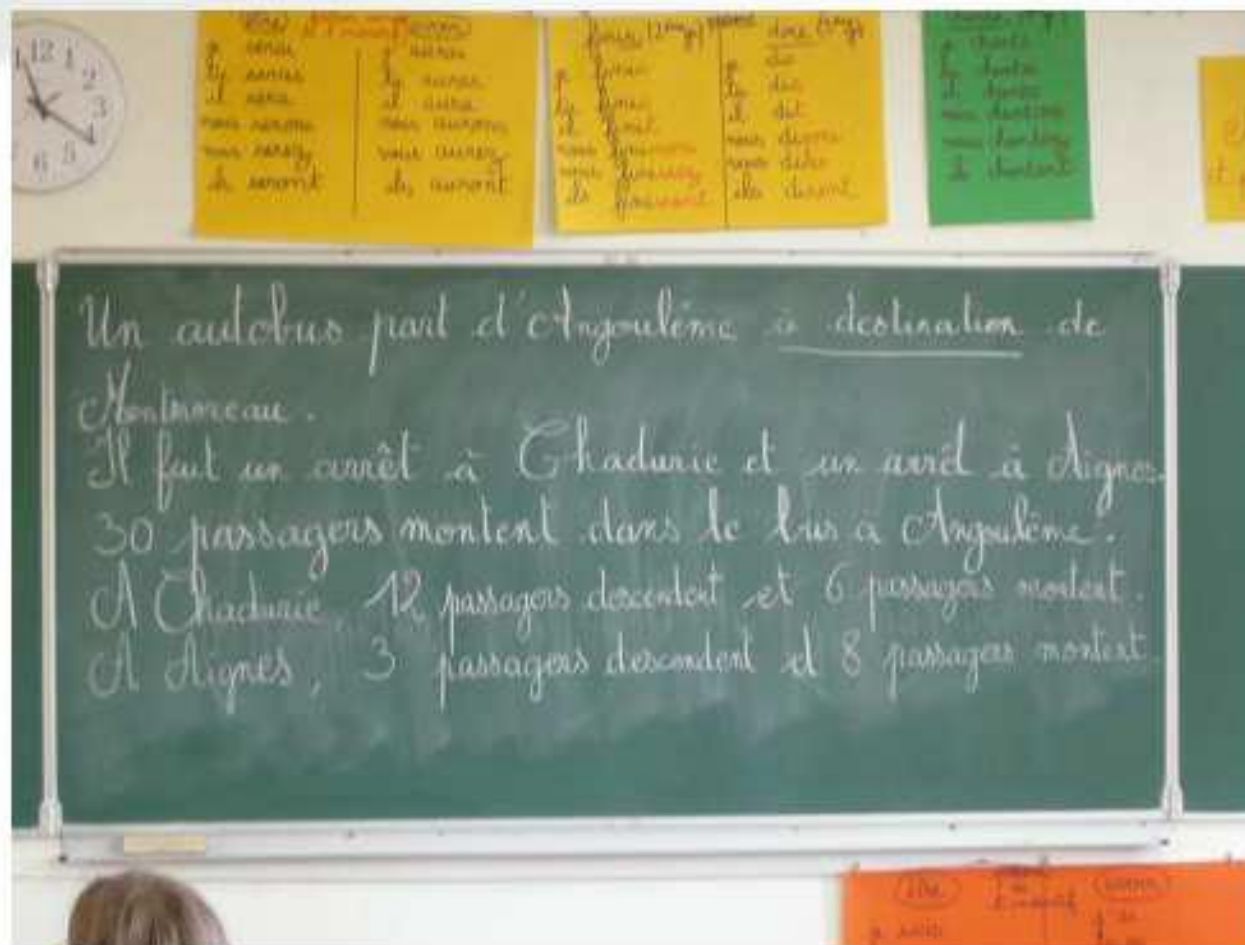 12 1
2
3
4
5
6
je serai
tu seras
il sera
nous serons
vous serez
ils seront
j'aurai
tu auras
il aura
nous aurons
vous aurez
ils auront
finir
je finis
tu finis
il finit
nous finissons
vous finissez
ils finissent
dire
je dis
tu dis
il dit
nous disons
vous dites
ils disent
je chante
tu chantes
il chante
nous chantons
vous chantez
ils chantent
Un autobus part d'Angoulême à destination de
Montmoreau.
Il fait un arrêt à Chadurie et un arrêt à Aignes.
30 passagers montent dans le bus à Angoulême.
A Chadurie, 12 passagers descendent et 6 passagers montent.
A Aignes, 3 passagers descendent et 8 passagers montent.
être
avoir
je suis
j'ai